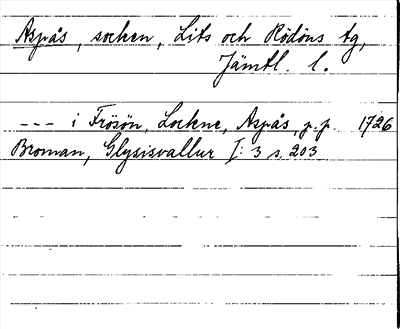 Aspås, socken, Lits och Rödöns tg,
Jämtl. l.
--- i Frösön, Lockne, Aspås, p.p. 1726
Broman, Glysisvallur I: 3 s. 203